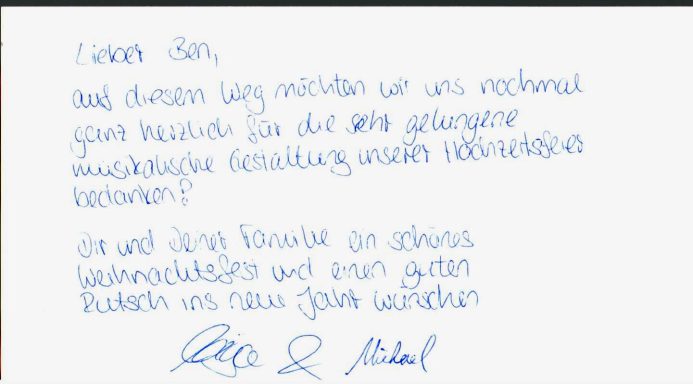 Lieber Ben,
auf diesem Weg möchten wir uns nochmal
ganz herzlich für die sehr gelungene
musikalische Gestaltung unserer Hochzeitsfeier
bedanken?
Dir und Deiner Familie ein schönes
Weihnachtsfest und einen guten
Rutsch ins neue Jahr wünschen
& Michael